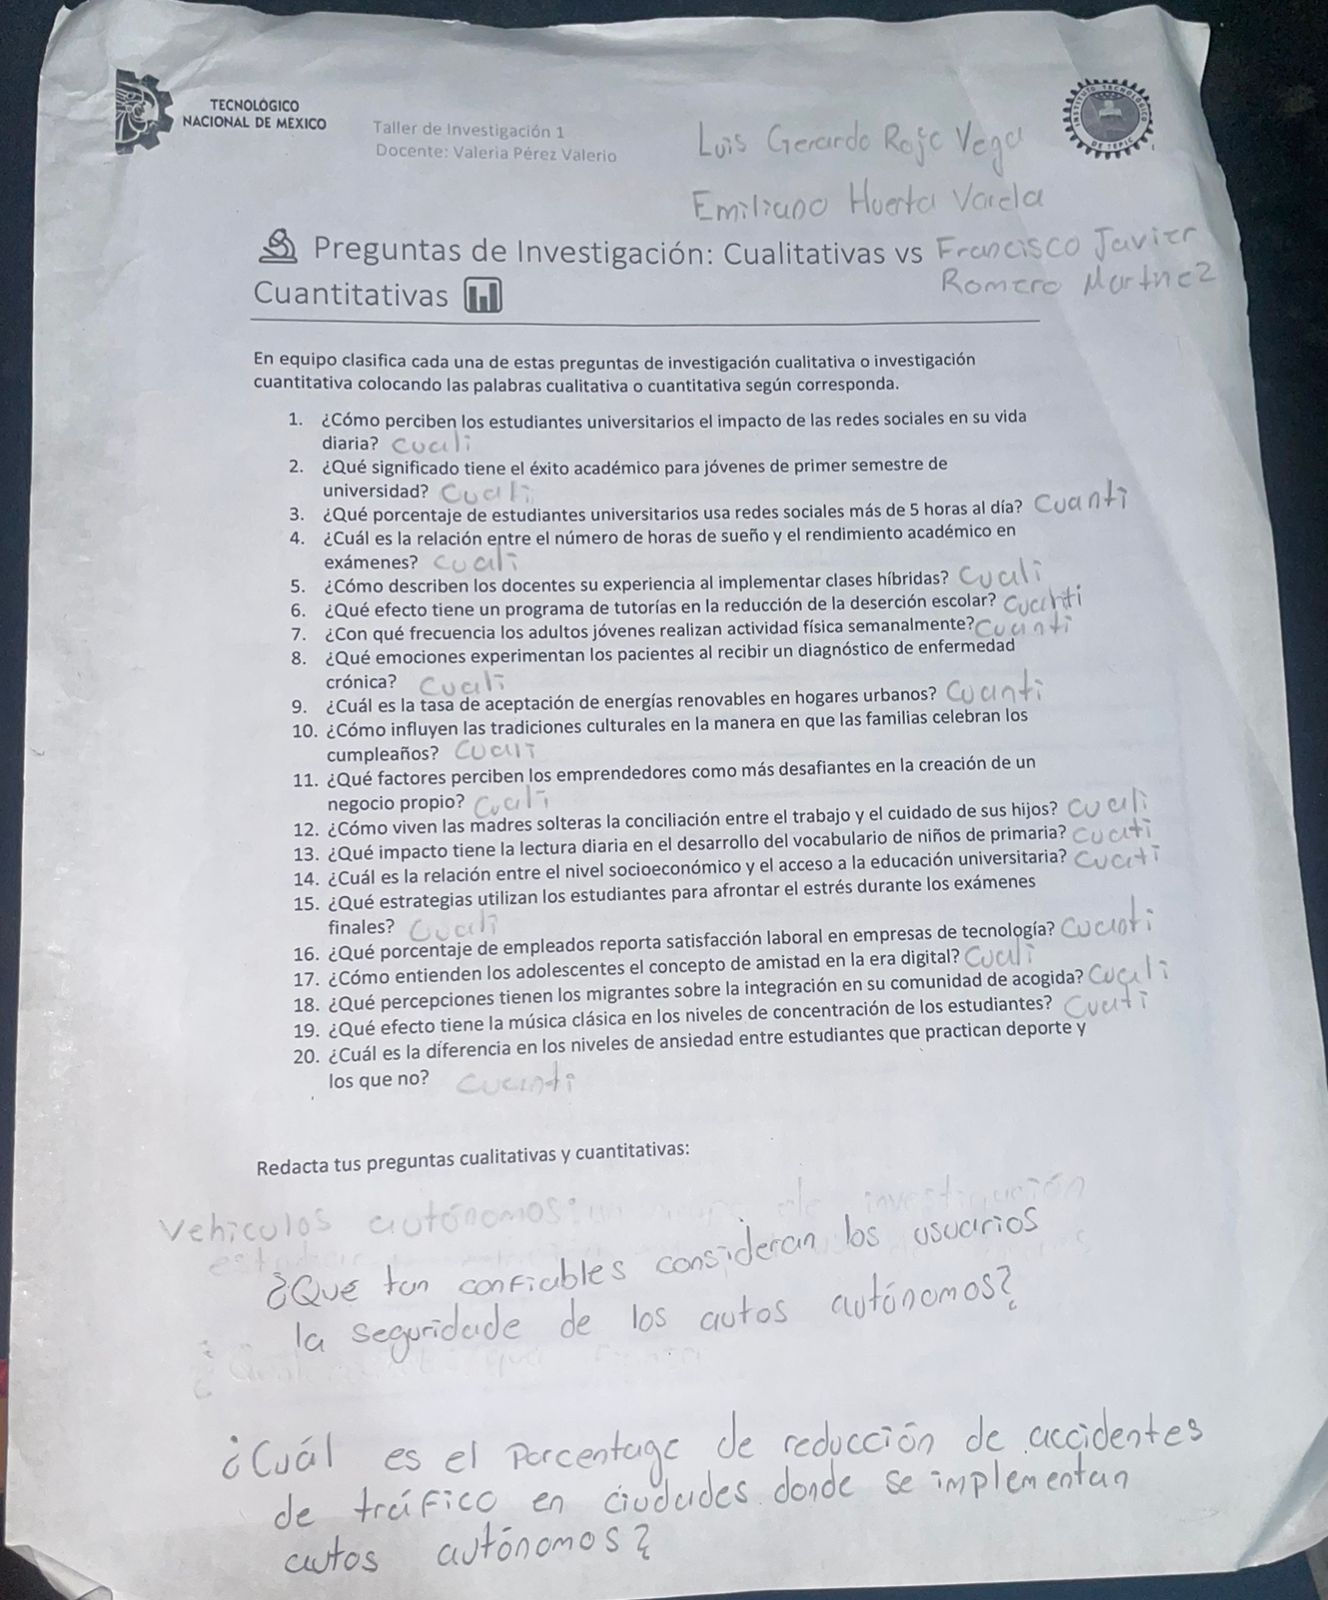 TECNOLÓGICO
NACIONAL DE MÉXICO
Taller de Investigación 1
Docente: Valeria Pérez Valerio
INSTITUTO TECNOLÓGICO
DE TEPIC
Luis Gerardo Rojo Vega
Emiliano Huerta Varela
Francisco Javier
Romero Martnez
Preguntas de Investigación: Cualitativas vs
Cuantitativas
En equipo clasifica cada una de estas preguntas de investigación cualitativa o investigación
cuantitativa colocando las palabras cualitativa o cuantitativa según corresponda.
1. ¿Cómo perciben los estudiantes universitarios el impacto de las redes sociales en su vida
diaria? Cuali
2. ¿Qué significado tiene el éxito académico para jóvenes de primer semestre de
universidad? Cuali
3. ¿Qué porcentaje de estudiantes universitarios usa redes sociales más de 5 horas al día? Cuanti
4. ¿Cuál es la relación entre el número de horas de sueño y el rendimiento académico en
exámenes? Cuali
5. ¿Cómo describen los docentes su experiencia al implementar clases híbridas? Cuali
6. ¿Qué efecto tiene un programa de tutorías en la reducción de la deserción escolar? Cuanti
7. ¿Con qué frecuencia los adultos jóvenes realizan actividad física semanalmente? Cuanti
8. ¿Qué emociones experimentan los pacientes al recibir un diagnóstico de enfermedad
crónica? Cuali
9. ¿Cuál es la tasa de aceptación de energías renovables en hogares urbanos? Cuanti
10. ¿Cómo influyen las tradiciones culturales en la manera en que las familias celebran los
cumpleaños? Cuali
11. ¿Qué factores perciben los emprendedores como más desafiantes en la creación de un
negocio propio? Cuali
12. ¿Cómo viven las madres solteras la conciliación entre el trabajo y el cuidado de sus hijos? Cuali
13. ¿Qué impacto tiene la lectura diaria en el desarrollo del vocabulario de niños de primaria? Cuati
14. ¿Cuál es la relación entre el nivel socioeconómico y el acceso a la educación universitaria? Cuati
15. ¿Qué estrategias utilizan los estudiantes para afrontar el estrés durante los exámenes
finales? Cuali
16. ¿Qué porcentaje de empleados reporta satisfacción laboral en empresas de tecnología? Cuanti
17. ¿Cómo entienden los adolescentes el concepto de amistad en la era digital? Cuali
18. ¿Qué percepciones tienen los migrantes sobre la integración en su comunidad de acogida? Cuali
19. ¿Qué efecto tiene la música clásica en los niveles de concentración de los estudiantes? Cuati
20. ¿Cuál es la diferencia en los niveles de ansiedad entre estudiantes que practican deporte y
los que no? Cuanti
Redacta tus preguntas cualitativas y cuantitativas:
Vehiculos autónomos: de investigación
¿Qué tan confiables consideran los usuarios
la seguridade de los autos autónomos?
¿Cuál es el Porcentage de reducción de accidentes
de tráfico en ciudades donde se implementan
autos autónomos?